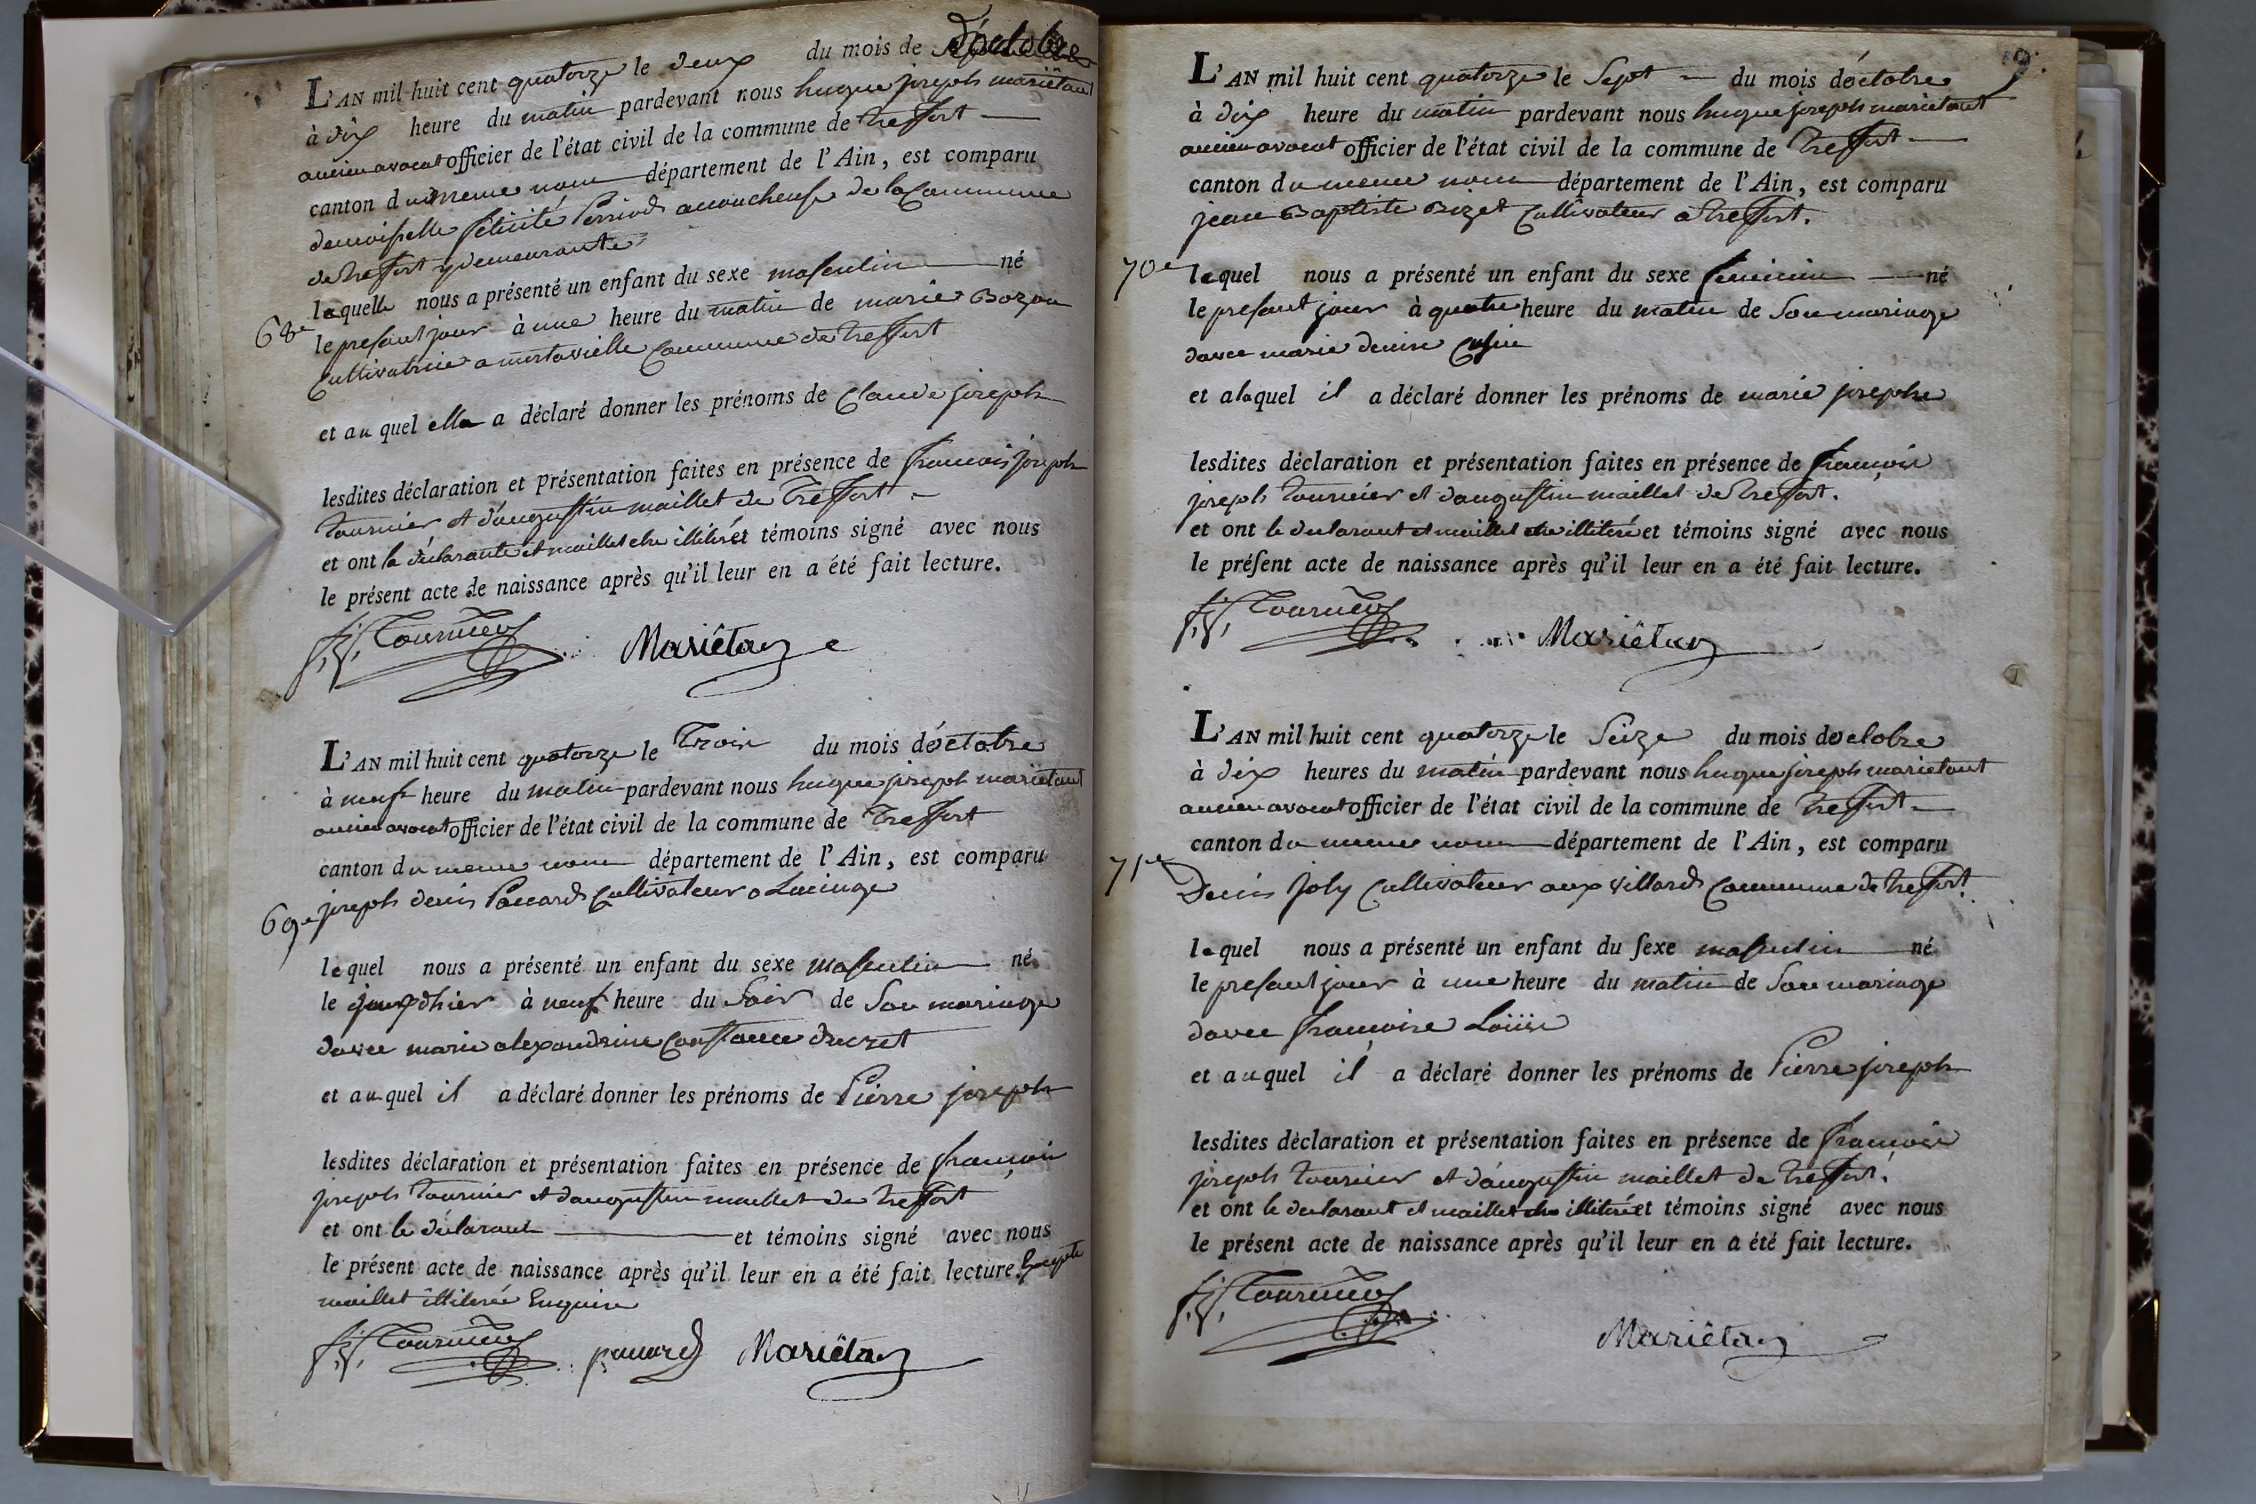 L'AN mil huit cent quatorze le deux du mois de d'octobre
à dix heure du matin pardevant nous hugue joseph mariétant
ancien avocat officier de l'état civil de la commune de Treffort
canton du meme nom département de l'Ain, est comparu
demoiselle félicité accoucheuse de la Commune
de treffort y demeurante
laquelle nous a présenté un enfant du sexe masculin né
68e le present jour à une heure du matin de marie Bozon
Cultivatrice a Commune de treffort
et au quel elle a déclaré donner les prénoms de Claude joseph
lesdites déclaration et présentation faites en présence de francois joseph
tournier et d'augustin maillet de Treffort
et ont la déclarante et maillet illiteré et témoins signé avec nous
le présent acte de naissance après qu'il leur en a été fait lecture.
f. j. Tournier Mariétan
L'AN mil huit cent quatorze le Trois du mois d'octobre
à neuf heure du matin pardevant nous hugue joseph mariétant
ancien avocat officier de l'état civil de la commune de Treffort
canton du meme nom département de l'Ain, est comparu
69e joseph denis Pauvard Cultivateur a Lucinge
lequel nous a présenté un enfant du sexe masculin né
le jour d'hier à neuf heure du Soir de Son mariage
davec marie alexandrine Constance ducret
et au quel il a déclaré donner les prénoms de Pierre joseph
lesdites déclaration et présentation faites en présence de françois
joseph tournier et d'augustin maillet de treffort
et ont le déclarant et témoins signé avec nous
le présent acte de naissance après qu'il leur en a été fait lecture.
maillet illiteré Enquis
f. j. Tournier Mariétan
L'AN mil huit cent quatorze le Sept du mois d'octobre
à dix heure du matin pardevant nous hugue joseph mariétant
ancien avocat officier de l'état civil de la commune de Treffort
canton du meme nom département de l'Ain, est comparu
jean Baptiste Bozet Cultivateur a treffort.
70e lequel nous a présenté un enfant du sexe feminin né
le present jour à quatre heure du matin de Son mariage
davec marie denise
et a laquel il a déclaré donner les prénoms de marie josephe
lesdites déclaration et présentation faites en présence de françois
joseph tournier et d'augustin maillet de treffort.
et ont le declarant et maillet illiteré et témoins signé avec nous
le présent acte de naissance après qu'il leur en a été fait lecture.
f. j. Tournier Mariétan
L'AN mil huit cent quatorze le Seize du mois d'octobre
à dix heures du matin pardevant nous hugue joseph mariétant
ancien avocat officier de l'état civil de la commune de Treffort
canton du meme nom département de l'Ain, est comparu
71e Denis Joly Cultivateur aux villards Commune de treffort.
lequel nous a présenté un enfant du sexe masculin né
le present jour à une heure du matin de Son mariage
davec françoise
et au quel il a déclaré donner les prénoms de Pierre joseph
lesdites déclaration et présentation faites en présence de françois
joseph tournier et d'augustin maillet de treffort.
et ont le declarant et maillet illiteré et témoins signé avec nous
le présent acte de naissance après qu'il leur en a été fait lecture.
f. j. Tournier
Mariétan